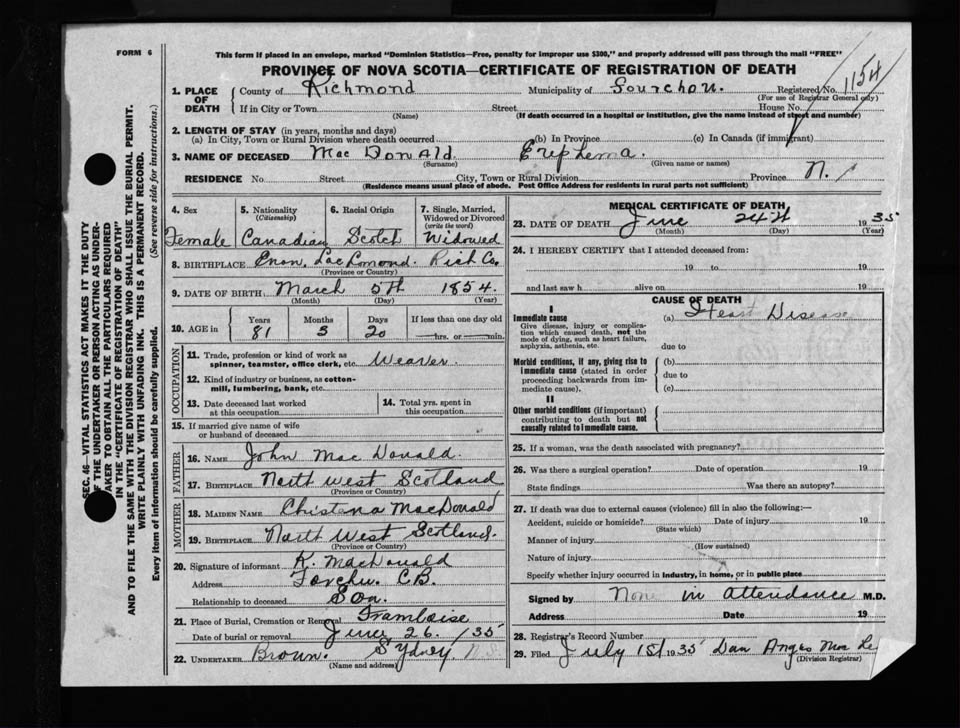 FORM 6
This form if placed in an envelope, marked "Dominion Statistics—Free, penalty for improper use $300," and properly addressed will pass through the mail "FREE"
PROVINCE OF NOVA SCOTIA—CERTIFICATE OF REGISTRATION OF DEATH
1. PLACE OF DEATH County of Richmond Municipality of Registered No. 1154
(For use of Registrar General only)
If in City or Town Street House No.
(Name) (If death occurred in a hospital or institution, give the name instead of street and number)
2. LENGTH OF STAY (in years, months and days)
(a) In City, Town or Rural Division where death occurred (b) In Province (c) In Canada (if immigrant)
3. NAME OF DECEASED Mac Donald Erephema.
(Surname) (Given name or names)
RESIDENCE No. Street City, Town or Rural Division Province N.
(Residence means usual place of abode. Post Office Address for residents in rural parts not sufficient)
4. Sex 5. Nationality (Citizenship) 6. Racial Origin 7. Single, Married, Widowed or Divorced (write the word)
Female Canadian Scotch Widowed
8. BIRTHPLACE Enon, Loc Lomond. Rich Co.
(Province or Country)
9. DATE OF BIRTH March 5th 1854.
(Month) (Day) (Year)
10. AGE in Years Months Days If less than one day old
81 3 20 hrs. or min.
OCCUPATION
11. Trade, profession or kind of work as spinner, teamster, office clerk, etc. Weaver.
12. Kind of industry or business, as cotton-mill, lumbering, bank, etc.
13. Date deceased last worked at this occupation 14. Total yrs. spent in this occupation
15. If married give name of wife or husband of deceased
FATHER
16. NAME John Mac Donald.
17. BIRTHPLACE North West Scotland
(Province or Country)
MOTHER
18. MAIDEN NAME Christena MacDonald
19. BIRTHPLACE North West Scotland.
(Province or Country)
20. Signature of informant K. MacDonald
Address Forchu. C.B.
Relationship to deceased Son.
21. Place of Burial, Cremation or Removal Framboise
Date of burial or removal June 26. /35
22. UNDERTAKER Brown. Sydney, N.S.
(Name and address)
MEDICAL CERTIFICATE OF DEATH
23. DATE OF DEATH June 24th 1935
(Month) (Day) (Year)
24. I HEREBY CERTIFY that I attended deceased from:
19 to 19
and last saw h alive on 19
CAUSE OF DEATH
I
Immediate cause (a) Heart Disease
Give disease, injury or complication which caused death, not the mode of dying, such as heart failure, asphyxia, asthenia, etc.
due to
Morbid conditions, if any, giving rise to immediate cause (stated in order proceeding backwards from immediate cause).
(b)
due to
(c)
II
Other morbid conditions (if important) contributing to death but not causally related to immediate cause.
25. If a woman, was the death associated with pregnancy?
26. Was there a surgical operation? Date of operation 19
State findings Was there an autopsy?
27. If death was due to external causes (violence) fill in also the following:—
Accident, suicide or homicide? Date of injury 19
(State which)
Manner of injury
(How sustained)
Nature of injury
Specify whether injury occurred in industry, in home, or in public place
Signed by None in attendance M.D.
Address Date 19
28. Registrar's Record Number
29. Filed July 1st 1935 Dan Angus Mac Le
(Division Registrar)
SEC. 46—VITAL STATISTICS ACT MAKES IT THE DUTY
OF THE UNDERTAKER OR PERSON ACTING AS UNDERTAKER TO OBTAIN ALL THE PARTICULARS REQUIRED
IN THE "CERTIFICATE OF REGISTRATION OF DEATH"
AND TO FILE THE SAME WITH THE DIVISION REGISTRAR WHO SHALL ISSUE THE BURIAL PERMIT.
WRITE PLAINLY WITH UNFADING INK. THIS IS A PERMANENT RECORD.
Every item of information should be carefully supplied. (See reverse side for instructions.)